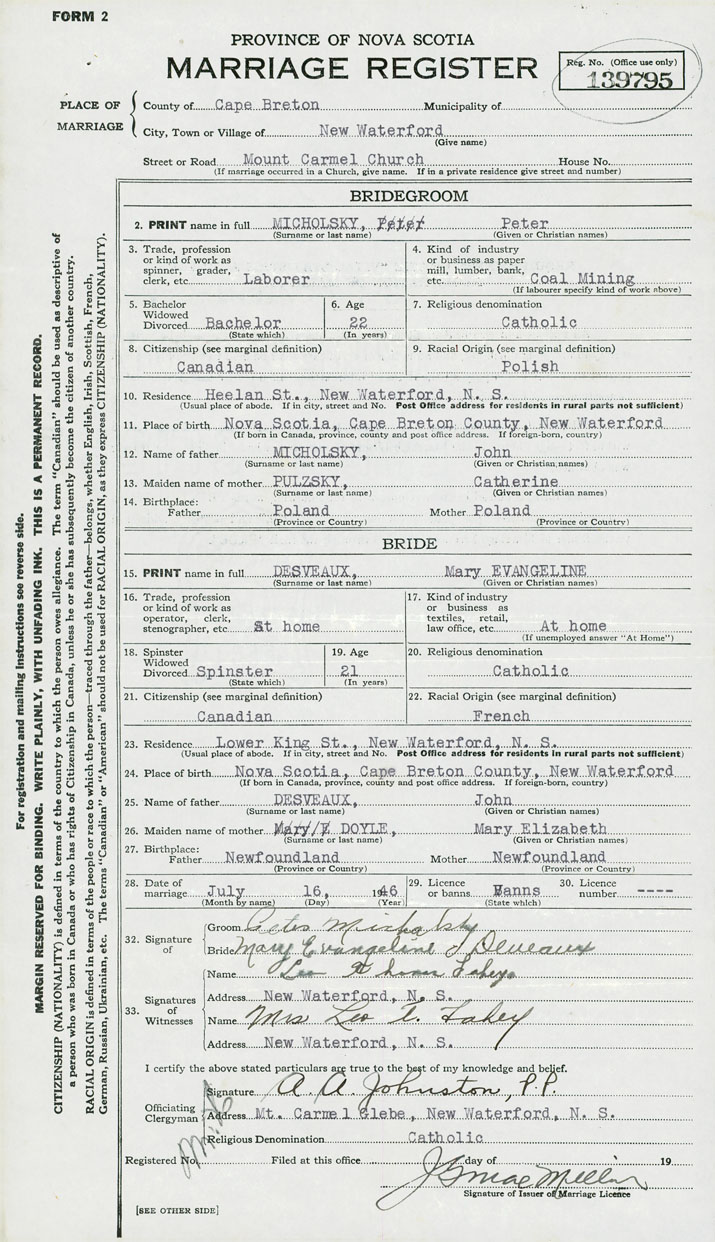 FORM 2
PROVINCE OF NOVA SCOTIA
MARRIAGE REGISTER
Reg. No. (Office use only)
139795
PLACE OF MARRIAGE
County of Cape Breton Municipality of
City, Town or Village of New Waterford
(Give name)
Street or Road Mount Carmel Church House No.
(If marriage occurred in a Church, give name. If in a private residence give street and number)
BRIDEGROOM
2. PRINT name in full MICHOLSKY, Peter Peter
(Surname or last name) (Given or Christian names)
3. Trade, profession or kind of work as spinner, grader, clerk, etc. Laborer
4. Kind of industry or business as paper mill, lumber, bank, etc. Coal Mining
(If labourer specify kind of work above)
5. Bachelor Widowed Divorced Bachelor
(State which)
6. Age 22
(In years)
7. Religious denomination
Catholic
8. Citizenship (see marginal definition)
Canadian
9. Racial Origin (see marginal definition)
Polish
10. Residence Heelan St., New Waterford, N. S.
(Usual place of abode. If in city, street and No. Post Office address for residents in rural parts not sufficient)
11. Place of birth Nova Scotia, Cape Breton County, New Waterford
(If born in Canada, province, county and post office address. If foreign-born, country)
12. Name of father MICHOLSKY, John
(Surname or last name) (Given or Christian names)
13. Maiden name of mother PULZSKY, Catherine
(Surname or last name) (Given or Christian names)
14. Birthplace:
Father Poland Mother Poland
(Province or Country) (Province or Country)
BRIDE
15. PRINT name in full DESVEAUX, Mary EVANGELINE
(Surname or last name) (Given or Christian names)
16. Trade, profession or kind of work as operator, clerk, stenographer, etc. At home
17. Kind of industry or business as textiles, retail, law office, etc. At home
(If unemployed answer "At Home")
18. Spinster Widowed Divorced Spinster
(State which)
19. Age 21
(In years)
20. Religious denomination
Catholic
21. Citizenship (see marginal definition)
Canadian
22. Racial Origin (see marginal definition)
French
23. Residence Lower King St., New Waterford, N. S.
(Usual place of abode. If in city, street and No. Post Office address for residents in rural parts not sufficient)
24. Place of birth Nova Scotia, Cape Breton County, New Waterford
(If born in Canada, province, county and post office address. If foreign-born, country)
25. Name of father DESVEAUX, John
(Surname or last name) (Given or Christian names)
26. Maiden name of mother Mary DOYLE, Mary Elizabeth
(Surname or last name) (Given or Christian names)
27. Birthplace:
Father Newfoundland Mother Newfoundland
(Province or Country) (Province or Country)
28. Date of marriage July 16, 1946
(Month by name) (Day) (Year)
29. Licence or banns Banns
(State which)
30. Licence number ----
32. Signature of
Groom Peter
Bride Mary Evangeline Deveaux
33. Signatures of Witnesses
Name Leo Fahey
Address New Waterford, N. S.
Name Mrs Leo T. Fahey
Address New Waterford, N. S.
I certify the above stated particulars are true to the best of my knowledge and belief.
Officiating Clergyman
Signature A. A. Johnston, P.P.
Address Mt. Carmel Glebe, New Waterford, N. S.
Religious Denomination Catholic
Registered No. Filed at this office day of 19
Signature of Issuer of Marriage Licence
[SEE OTHER SIDE]
For registration and mailing instructions see reverse side.
MARGIN RESERVED FOR BINDING. WRITE PLAINLY, WITH UNFADING INK. THIS IS A PERMANENT RECORD.
CITIZENSHIP (NATIONALITY) is defined in terms of the country to which the person owes allegiance. The term "Canadian" should be used as descriptive of
a person who was born in Canada or who has rights of Citizenship in Canada, unless he or she has subsequently become the citizen of another country.
RACIAL ORIGIN is defined in terms of the people or race to which the person—traced through the father—belongs, whether English, Irish, Scottish, French,
German, Russian, Ukrainian, etc. The terms "Canadian" or "American" should not be used for RACIAL ORIGIN, as they express CITIZENSHIP (NATIONALITY).